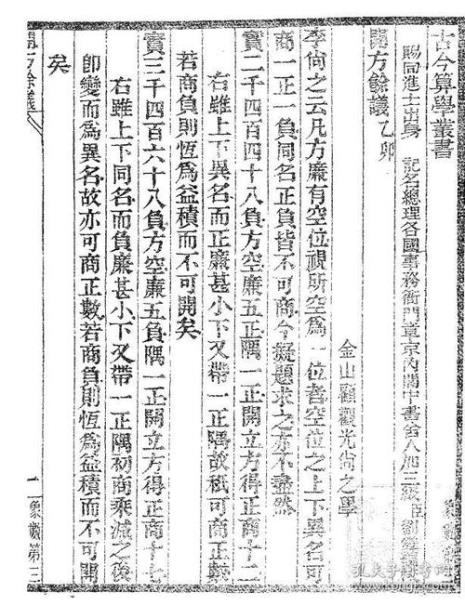 古今算學叢書
賜同進士出身 記名總理各國事務衙門章京內閣中書舍人加三級臣劉
開方餘議 乙卯
金山顧觀光尚之學
李尚之云凡方廉有空位視所空為一位者空位之上下異名可
商一正一負同名正負皆不可商今擬題求之亦不盡然
實二千四百四十八負方空廉五正隅一正開立方得正商十二
右雖上下異名而正廉甚小下又帶一正隅故秪可商正數
若商負則恆為益積而不可開矣
實三千四百六十八負方空廉五負隅一正開立方得正商十七
右雖上下同名而負廉甚小下又帶一正隅初商乘減之後
卽變而為異名故亦可商正數若商負則恆為益積而不可開
矣
開方餘議
一
象數第三